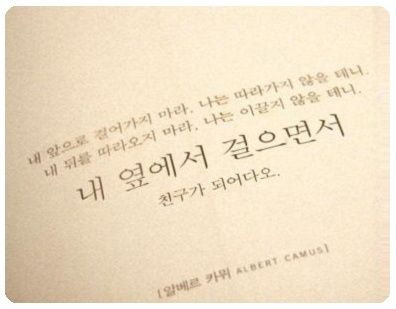 내 앞으로 걸어가지 마라. 나는 따라가지 않을 테니.
내 뒤를 따라오지 마라. 나는 이끌지 않을 테니.
내 옆에서 걸으면서
친구가 되어다오.
[알베르 카뮈 ALBERT CAMUS]